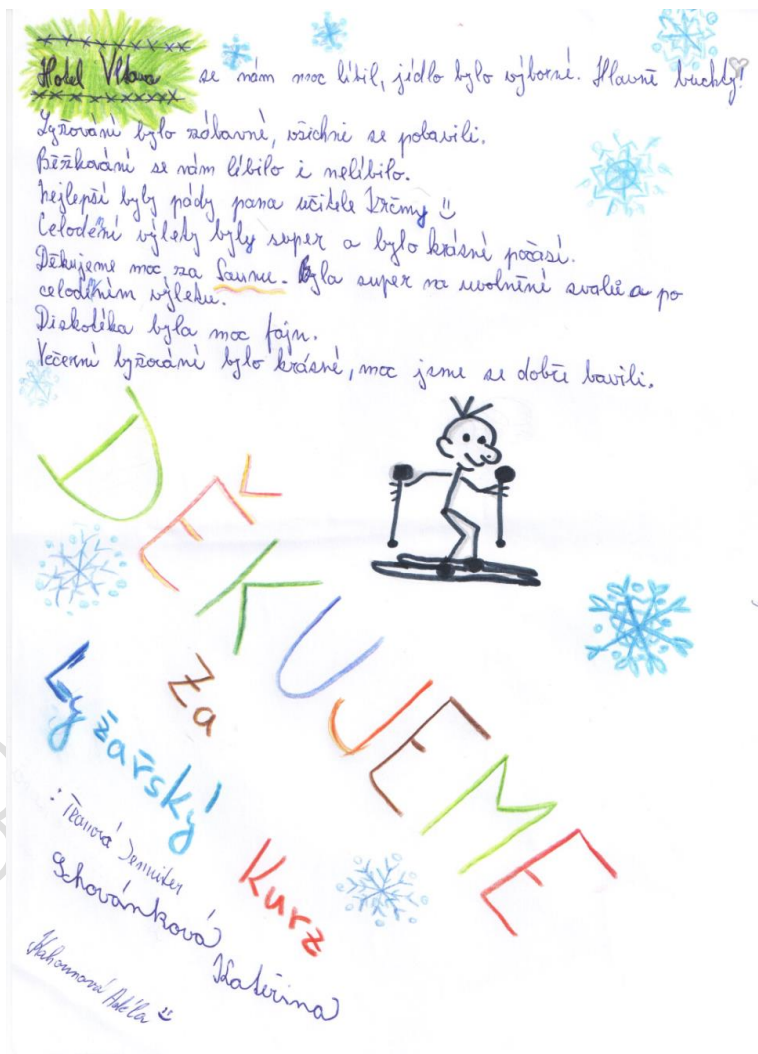 Hotel Vltava se nám moc líbil, jídlo bylo výborné. Hlavně buchty!
Lyžování bylo zábavné, všichni se pobavili.
Běžkování se nám líbilo i nelíbilo.
Nejlepší byly pády pana učitele Krčmy
Celodení výlety byly super a bylo krásné počasí.
Děkujeme moc za Saunu. Byla super na uvolnění svalů a po
celodením výletu.
Diskotéka byla moc fajn.
Večerní lyžování bylo krásné, moc jsme se dobře bavili.
DĚKUJEME
za
Lyžařský
Kurz
Jennifer
Schovánková
Kateřina
Kahounová Adéla